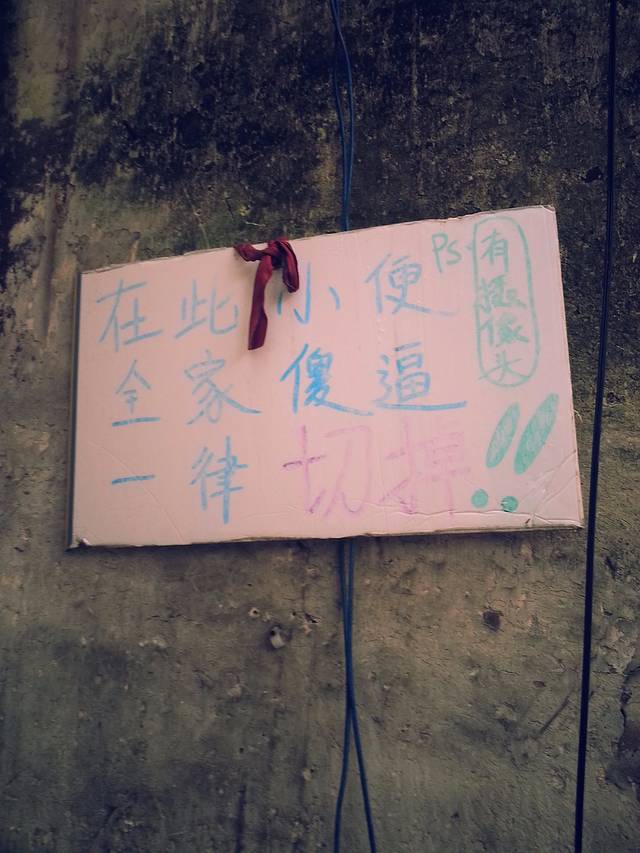 在此小便
全家傻逼
一律切掉!!
Ps
有摄像头